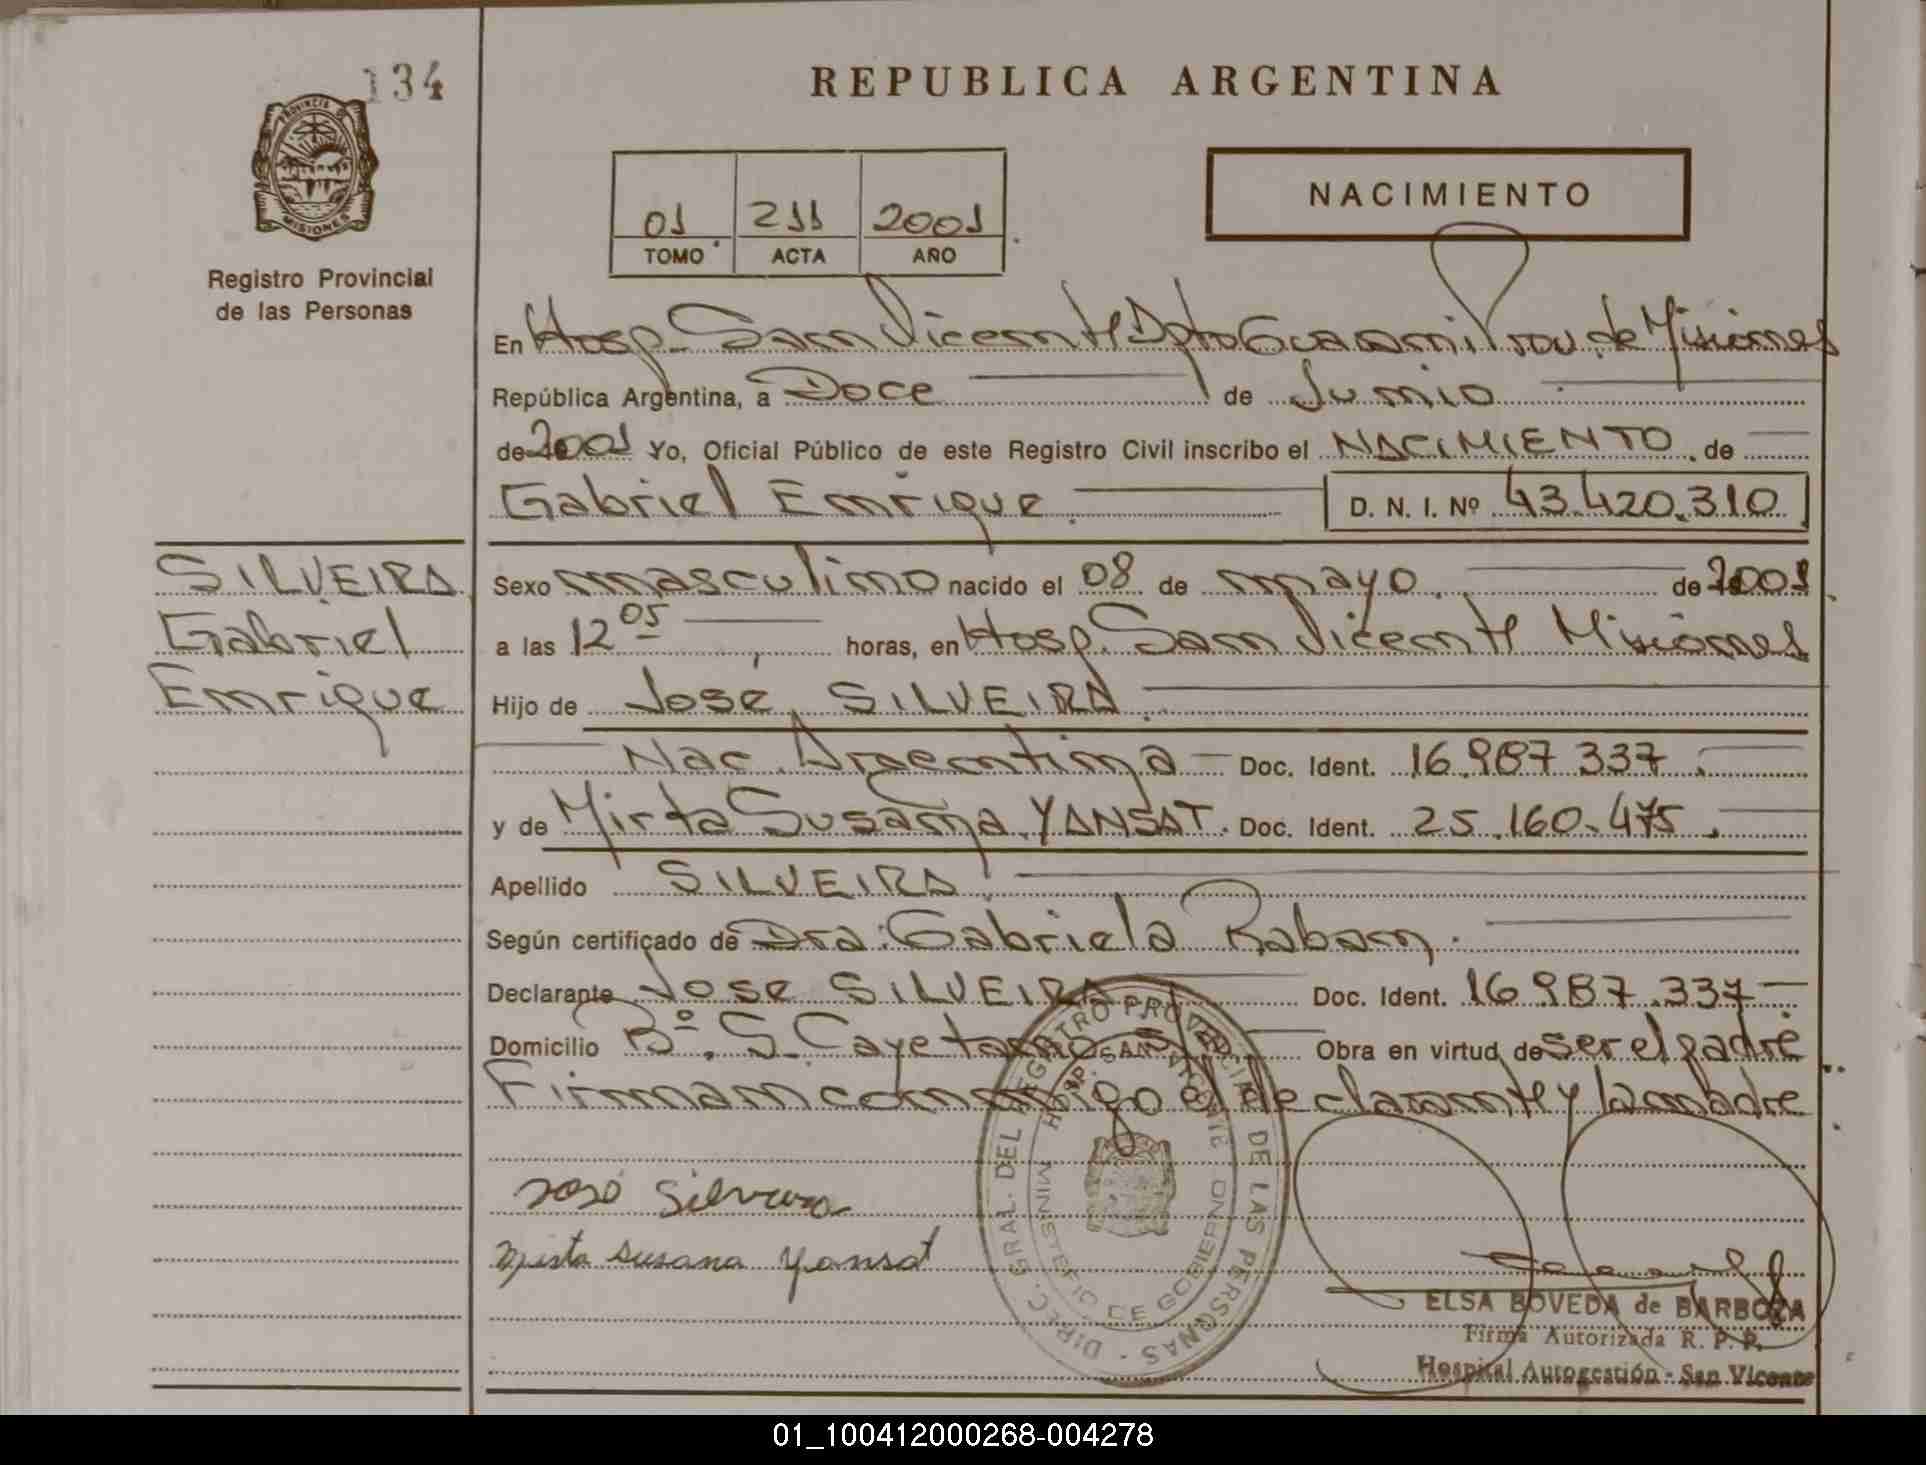 134
PROVINCIA
MISIONES
Registro Provincial
de las Personas
REPUBLICA ARGENTINA
01 211 2001
TOMO ACTA AÑO
NACIMIENTO
En Hosp. San Vicente Dpto Guarani Prov. de Misiones
República Argentina, a Doce de Junio
de 2001 Yo, Oficial Público de este Registro Civil inscribo el NACIMIENTO de
Gabriel Enrique D. N. I. Nº 43.420.310
SILVEIRA
Gabriel
Enrique
Sexo masculino nacido el 08 de mayo de 2001
a las 12 05 horas, en Hosp. San Vicente Misiones
Hijo de José SILVEIRA
Nac. Argentina Doc. Ident. 16.987.337
y de Mirta Susana YANSAT. Doc. Ident. 25.160.475
Apellido SILVEIRA
Según certificado de Dra. Gabriela Raban
Declarante José SILVEIRA Doc. Ident. 16.987.337
Domicilio Bº. S. Cayetano Obra en virtud de ser el padre
Firman conmigo el declarante y la madre
DIREC. GRAL. DEL REGISTRO PROVINCIAL DE LAS PERSONAS
HOSP. SAN VICENTE
MINISTERIO DE GOBIERNO
José Silveira
Mirta Susana Yansat
ELSA BOVEDA de BARBOZA
Firma Autorizada R. P. P.
Hospital Autogestión - San Vicente
01_100412000268-004278